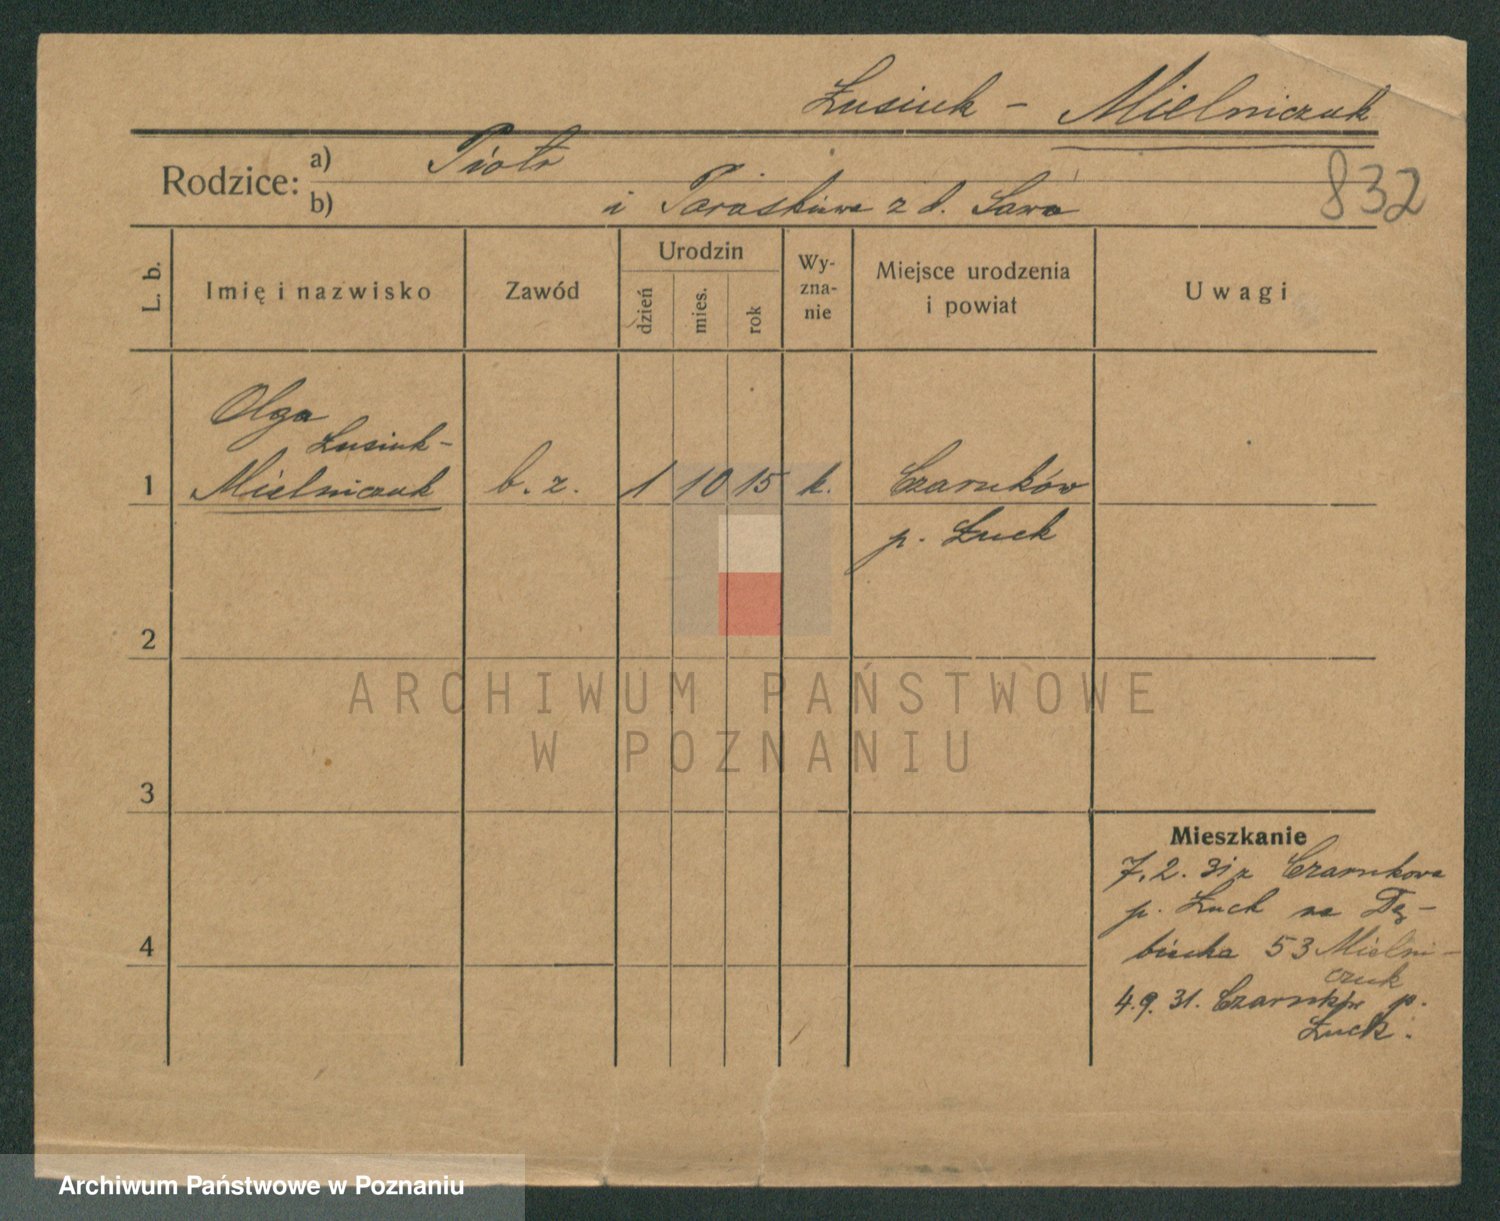 Łusiuk - Mielniczuk
Rodzice: a) Piotr
b) i Paraskiwa z d. Sawa
832
L. b.
Imię i nazwisko
Zawód
Urodzin
dzień
mies.
rok
Wy-
zna-
nie
Miejsce urodzenia
i powiat
Uwagi
Olga
Łusiuk-
1 Mielniczuk b. z. 1 10 15 k. Czarnków
p. Łuck
2
ARCHIWUM PAŃSTWOWE
W POZNANIU
3
Mieszkanie
7.2.31 z Czarnkowa
p. Łuck na Dę-
biecka 53 Mielni-
czuk
4
4.9.31. Czarnków p.
Łuck.
Archiwum Państwowe w Poznaniu